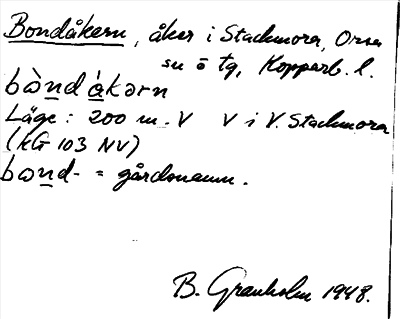 Bondåkern, åker i Stackmora, Orsa
sn o tg, Kopparb. l.
bònd ákərn
Läge: 200 m. V V i V. Stackmora
(KG 103 NV)
bond- = gårdsnamn.
B. Granholm 1948.